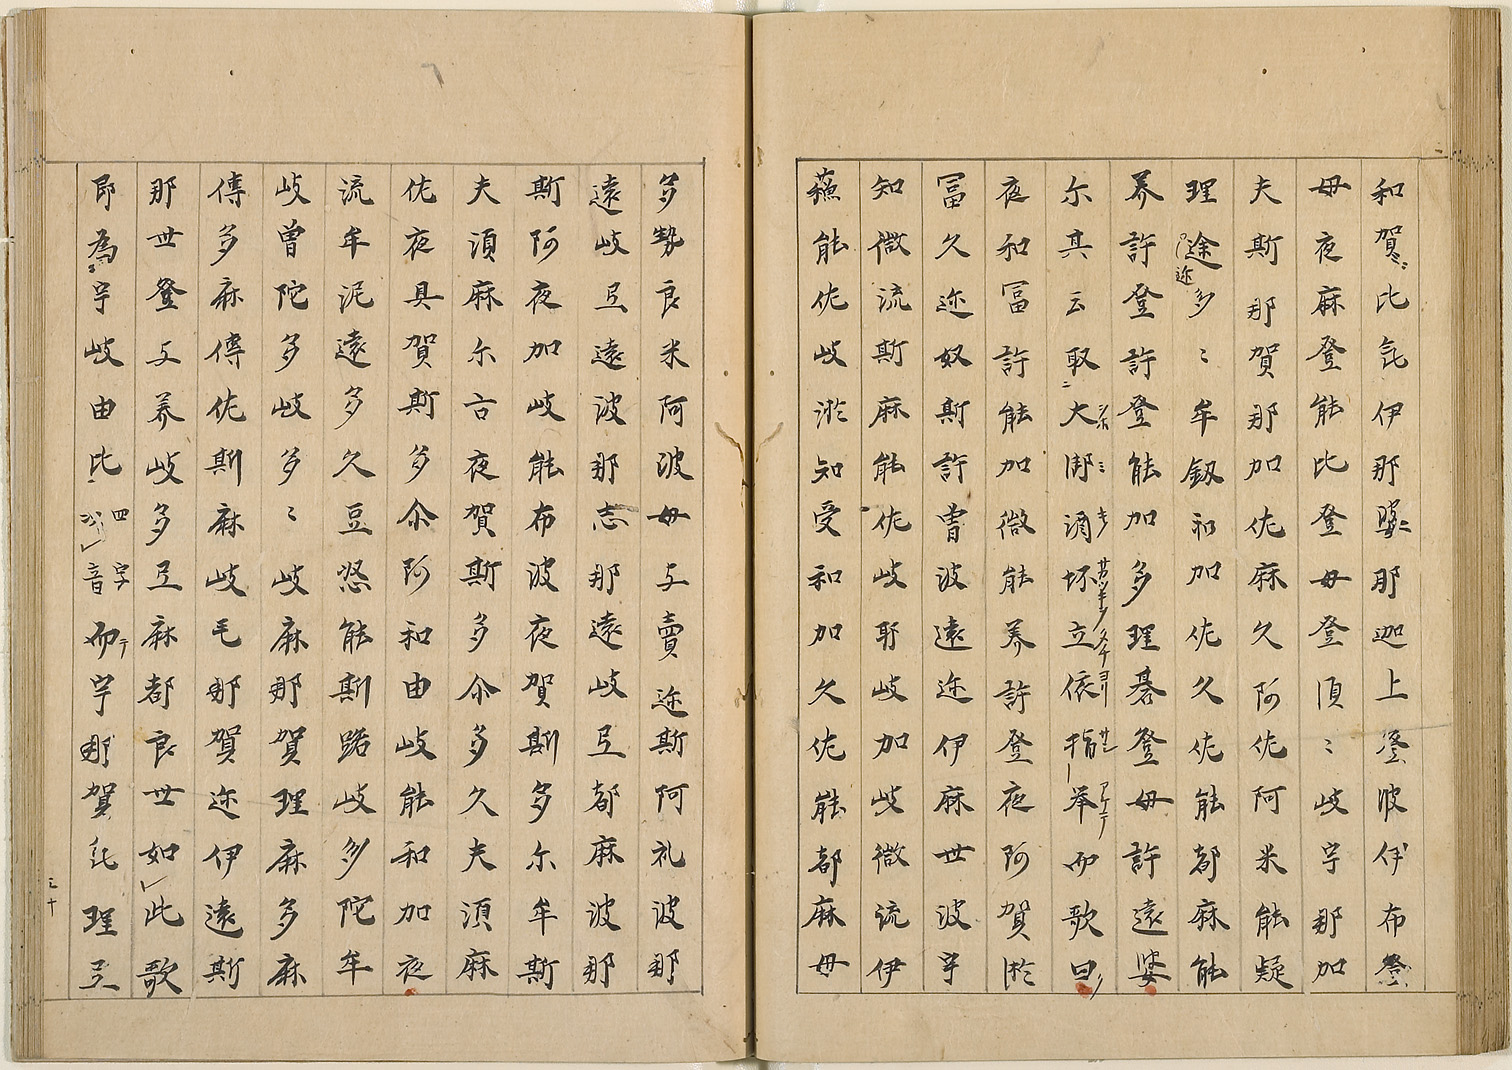 和賀比気伊那婆那迦上登波伊布登
母夜麻登能比登母登須〻岐宇那加
夫斯那賀那加佐麻久阿佐阿米能疑
理途迩多〻牟釼和加佐久佐能都麻能
养許登許登能加多理碁登母許遠婆
尔其云取大御酒坏立依指举而歌曰
夜和冨許能加微能养許登夜阿賀淤
冨久迩奴斯許曽波遠迩伊麻世波宇
知微流斯麻能佐岐耶岐加岐微流伊
蘓能佐岐淤知受和加久佐能都麻母
多勢良米阿波母与賣迩斯阿礼波那
遠岐弖遠波那志那遠岐弖都麻波那
斯阿夜加岐能布波夜賀斯多尔牟斯
夫須麻尔古夜賀斯多尒多久夫須麻
佐夜具賀斯多尒阿和由岐能和加夜
流牟泥遠多久豆怒能斯路岐多陀牟
岐曽陀多岐多〻岐麻那賀理麻多麻
傳多麻傳佐斯麻岐毛那賀迩伊遠斯
那世登与养岐多弖麻都良世如此歌
即為宇岐由比四字以音而宇那賀気理弖
三十